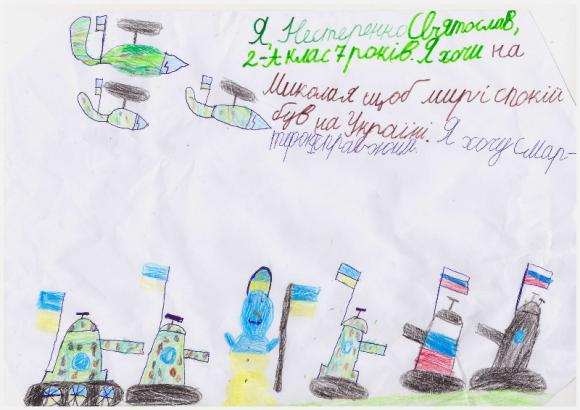 Я Нестеренко Святослав,
2-А клас 7 років. Я хочу на
Миколая щоб мир і спокій
був на Україні. Я хочу смар-
тфон справжний.